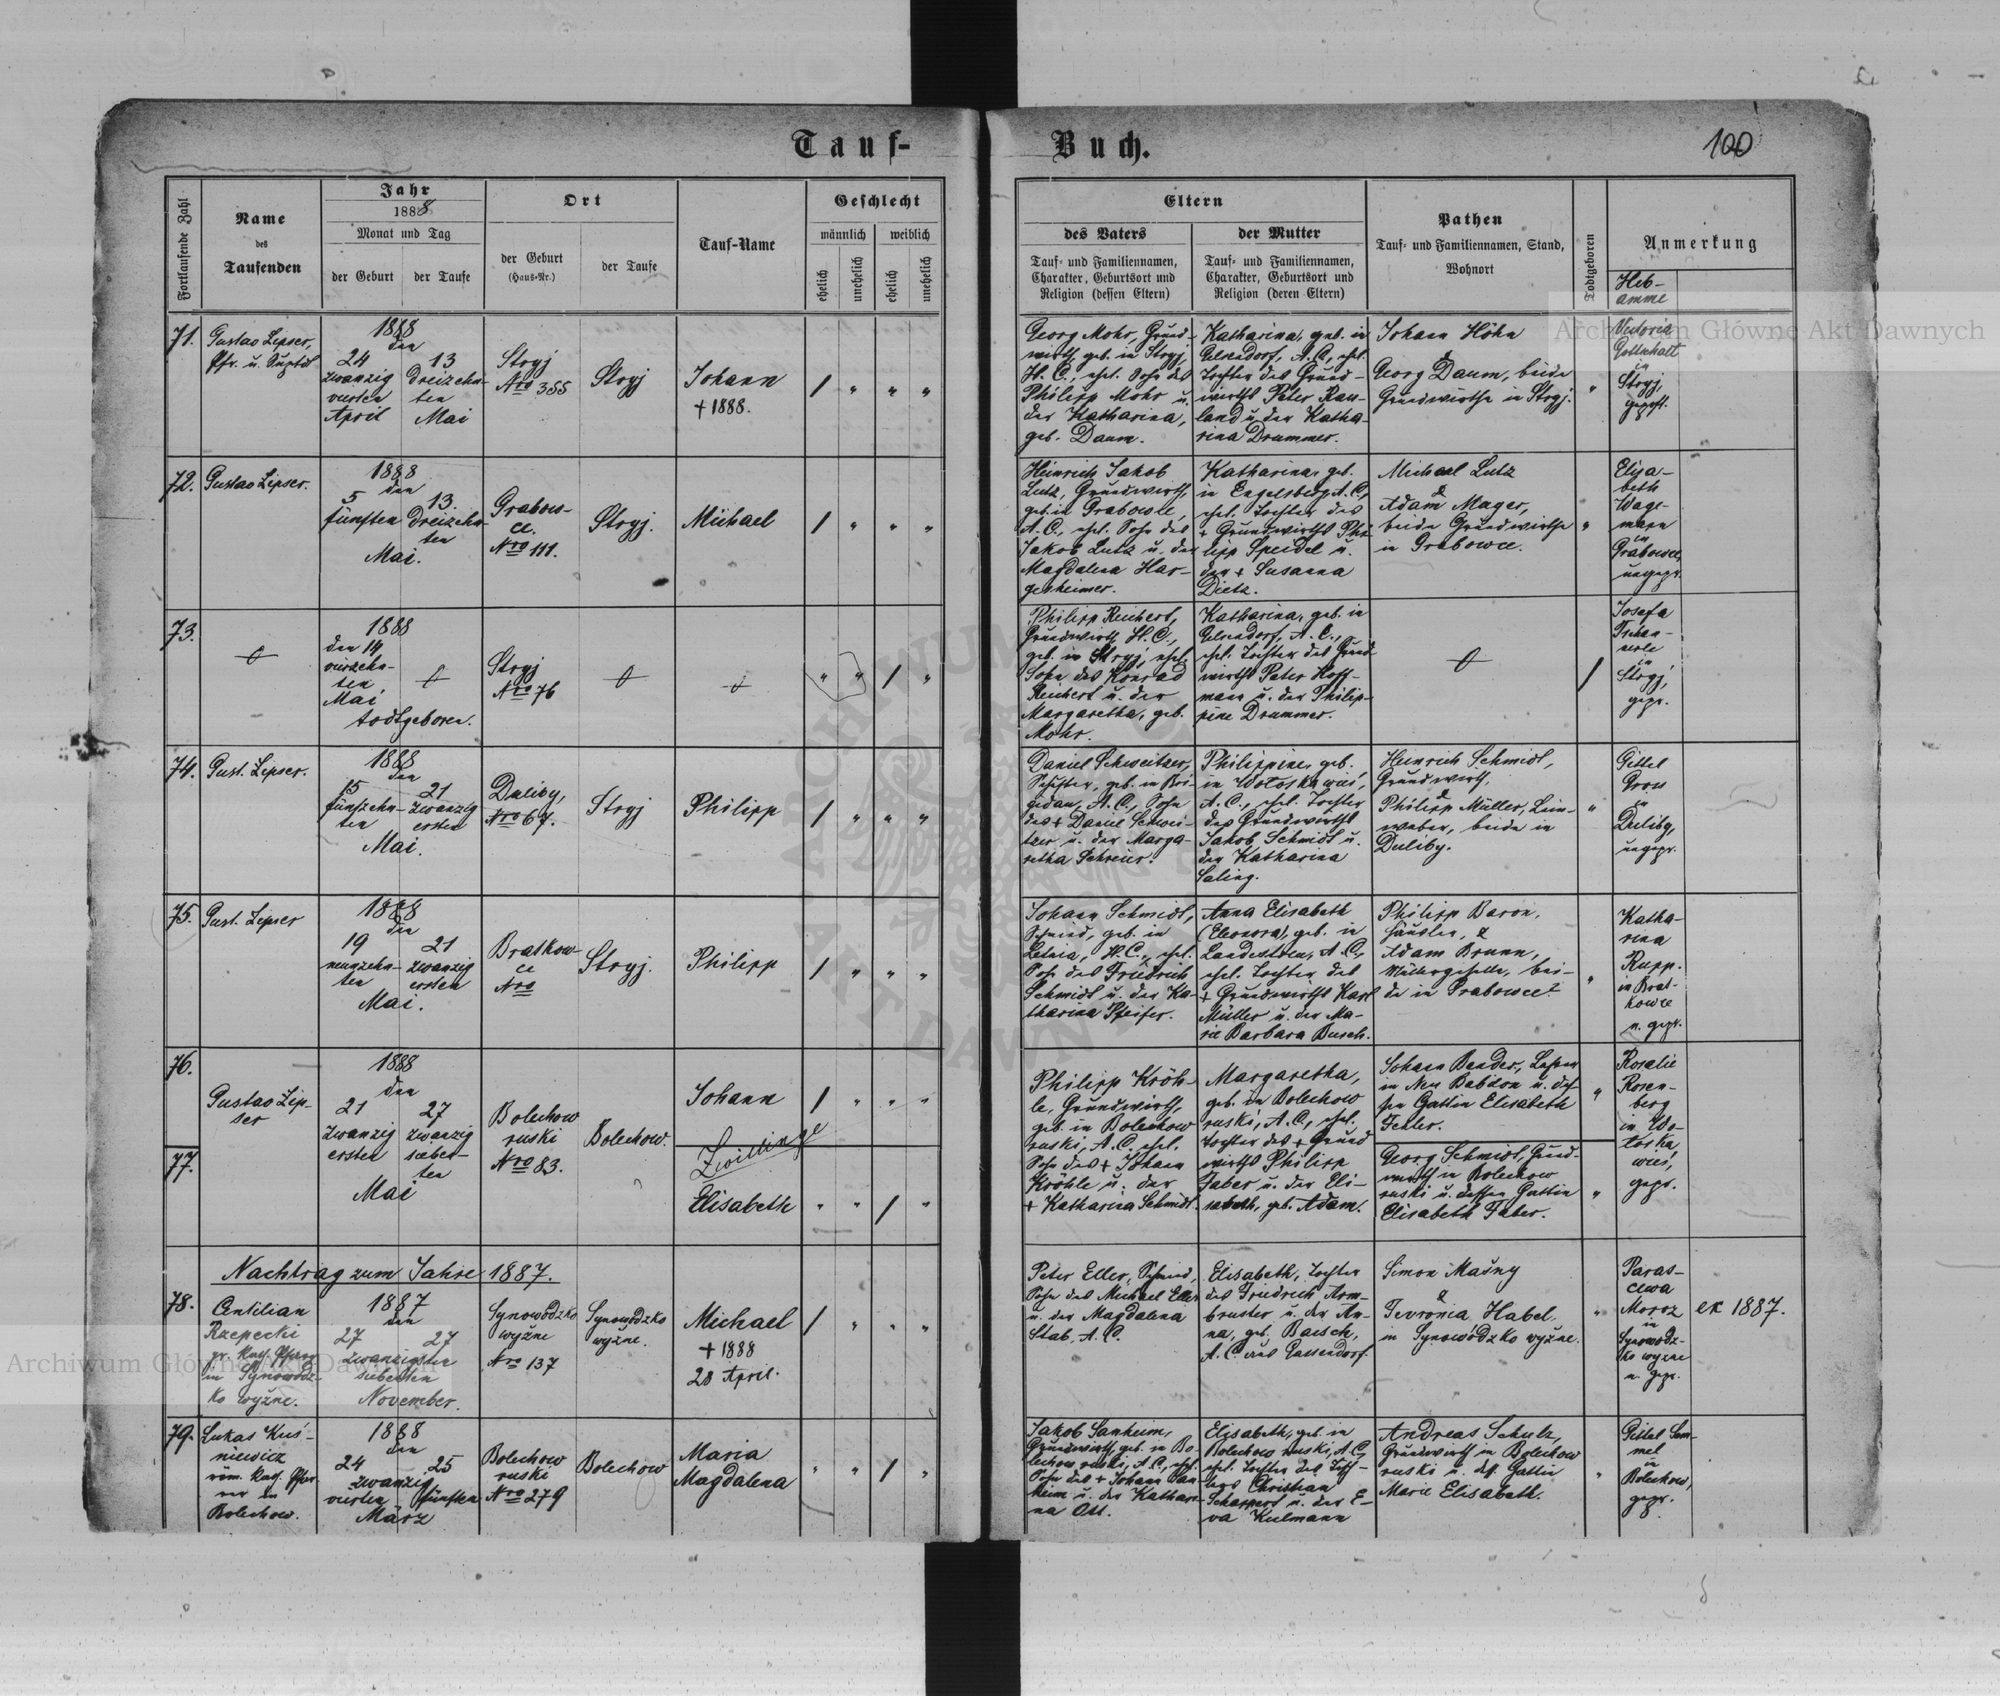 Tauf-
Buch.
100
Fortlaufende Zahl
Name
des
Taufenden
Jahr
1888
Monat und Tag
der Geburt
der Taufe
Ort
der Geburt
(Haus-Nr.)
der Taufe
Tauf-Name
Geschlecht
männlich
weiblich
ehelich
unehelich
ehelich
unehelich
Eltern
des Vaters
Tauf- und Familiennamen,
Charakter, Geburtsort und
Religion (dessen Eltern)
der Mutter
Tauf- und Familiennamen,
Charakter, Geburtsort und
Religion (deren Eltern)
Pathen
Tauf- und Familiennamen, Stand,
Wohnort
Todtgeboren
Anmerkung
Heb-
amme
71.
Gustav Lepser,
Pfr. u.
1888
den
24
zwanzig
vierten
April
13
dreizehn-
ten
Mai
Stryj
Nro 355
Stryj
Johann
+ 1888.
Georg Mohr, Grund-
wirth, geb. in Stryj,
H. C., ehel. Sohn des
Philipp Mohr u.
der Katharina,
geb. Daum.
Katharina, geb. in
Gelsendorf, A. C., ehel.
Tochter des Grund-
wirths Peter Rau-
land u. der Katha-
rina Drummer.
Johann Höhn
&
Georg Daum, beide
Grundwirthe in Stryj.
Victoria
Gottschalt
in
Stryj,
geprft.
72.
Gustav Lepser.
1888
den
5
fünften
13.
dreizehn-
ten
Mai.
Grabow-
ce.
Nro 111.
Stryj.
Michael
Heinrich Jakob
Lutz, Grundwirth,
geb. in Grabowce,
A. C., ehel. Sohn des
Jakob Lutz u. der
Magdalena Har-
gesheimer.
Katharina, geb.
in Engelsberg, A. C.,
ehel. Tochter des
+ Grundwirths Phi-
lipp Speidel u.
der + Susanna
Dietz.
Michael Lutz
&
Adam Mager,
beide Grundwirthe
in Grabowce.
Elisa-
beth
Wage-
mann
in
Grabowce,
ungepr.
73.
1888
den 14
vierzehn-
ten
Mai
todtgeboren.
Stryj
Nro 76
Philipp Reichert,
Grundwirth, H. C.,
geb. in Stryj, ehel.
Sohn des Konrad
Reichert u. der
Margaretha, geb.
Mohr.
Katharina, geb. in
Gelsendorf, A. C.,
ehel. Tochter des Grund-
wirths Peter Hoff-
mann u. der Philip-
pine Drummer.
Josefa
in
Stryj,
gepr.
74.
Gust. Lepser.
1888
den
15
fünfzehn-
ten
21
zwanzig
ersten
Mai.
Duliby,
Nro 67.
Stryj
Philipp
Daniel Schweitzer,
geb. in Bri-
gidau, A. C., Sohn
des + Daniel Schwei-
tzer u. der Marga-
retha Schreier.
Philippine, geb.
in Wołoska wieś,
A. C., ehel. Tochter
des Grundwirths
Jakob Schmidt u.
der Katharina
Saling.
Heinrich Schmidt,
Grundwirth,
&
Philipp Müller, Lein-
weber, beide in
Duliby.
Gittel
Gross
in
Duliby,
ungepr.
75.
Gust. Lepser
1888
den
19
neunzehn-
ten
21
zwanzig
ersten
Mai.
Bratkow-
ce
Nro
Stryj.
Philipp
Johann Schmidt,
Schmied, geb. in
Letnia, H. C., ehel.
Sohn des Friedrich
Schmidt u. der Ka-
tharina Pfeifer.
Anna Elisabeth
(Eleonora), geb. in
Landestreu, A. C.,
ehel. Tochter des
+ Grundwirths Karl
Müller u. der Ma-
rie Barbara Busch.
Philipp Baron,
Häusler, &
Adam Brunn,
Müllergeselle, bei-
de in Grabowce.
Katha-
rina
Rupp.
in Brat-
kowce
u. gepr.
76.
77.
Gustav Lep-
ser
1888
den
21
zwanzig
ersten
27
zwanzig
sieben-
ten
Mai
Bolechow
ruski
Nro 83.
Bolechow.
Johann
Zwillinge
Elisabeth
Philipp Kröh-
le, Grundwirth,
geb. in Bolechow
ruski, A. C., ehel.
Sohn des + Johann
Kröhle u. der
+ Katharina Schmidt.
Margaretha,
geb. in Bolechow
ruski, A. C., ehel.
Tochter des + Grund
wirths Philipp
Faber u. der Eli-
sabeth, geb. Adam.
Johann Bender,
in Neu Babilon u. des-
sen Gattin Elisabeth
Georg Schmidt, Grund-
wirth in Bolechow
ruski u. dessen Gattin
Elisabeth Faber.
Rosalie
Rosen-
berg
in Wo-
łoska
wieś,
gepr.
Nachtrag zum Jahre 1887.
78.
Rzepecki
gr. kath. Pfarrer
in Synowódz-
ko wyżne.
1887
den
27
27
zwanzigsten
siebenten
November.
Synowódzko
wyżne
Nro 137
Synowódzko
wyżne.
Michael
+ 1888
28 April.
Peter Eller, Schmied,
Sohn des Michael Eller
u. der Magdalena
Stab, A. C.
Elisabeth, Tochter
des Friedrich Arm-
bruster u. der An-
na, geb. Baesch,
A. C. aus Gassendorf.
Simon Maśny
&
Fevronia Habel,
in Synowódzko wyżne.
Paras-
cewa
Moroz
in
Synowódz-
ko wyżne
u. gepr.
ex 1887.
79.
Lukas Kuś-
niewicz
röm. kath. Pfar-
rer in
Bolechow.
1888
den
24
25
zwanzig
vierten
fünften
März
Bolechow
ruski
Nro 279
Bolechow
Maria
Magdalena
Jakob Sanheim,
Grundwirth, geb. in Bo-
lechow ruski, A. C., ehel.
Sohn des + Johann San-
heim u. der Kathari-
na Ott.
Elisabeth, geb. in
Bolechow ruski, A. C.,
ehel. Tochter des Tisch-
lers Christian
Schappert u. der E-
va Kulmann
Andreas Schulz,
Grundwirth in Bolechow
ruski u. dess. Gattin
Marie Elisabeth.
in
Bolechow,
gepr.
Archiwum Główne Akt Dawnych
Archiwum Główne Akt Dawnych
ARCHIWUM
AKT DAWNYCH